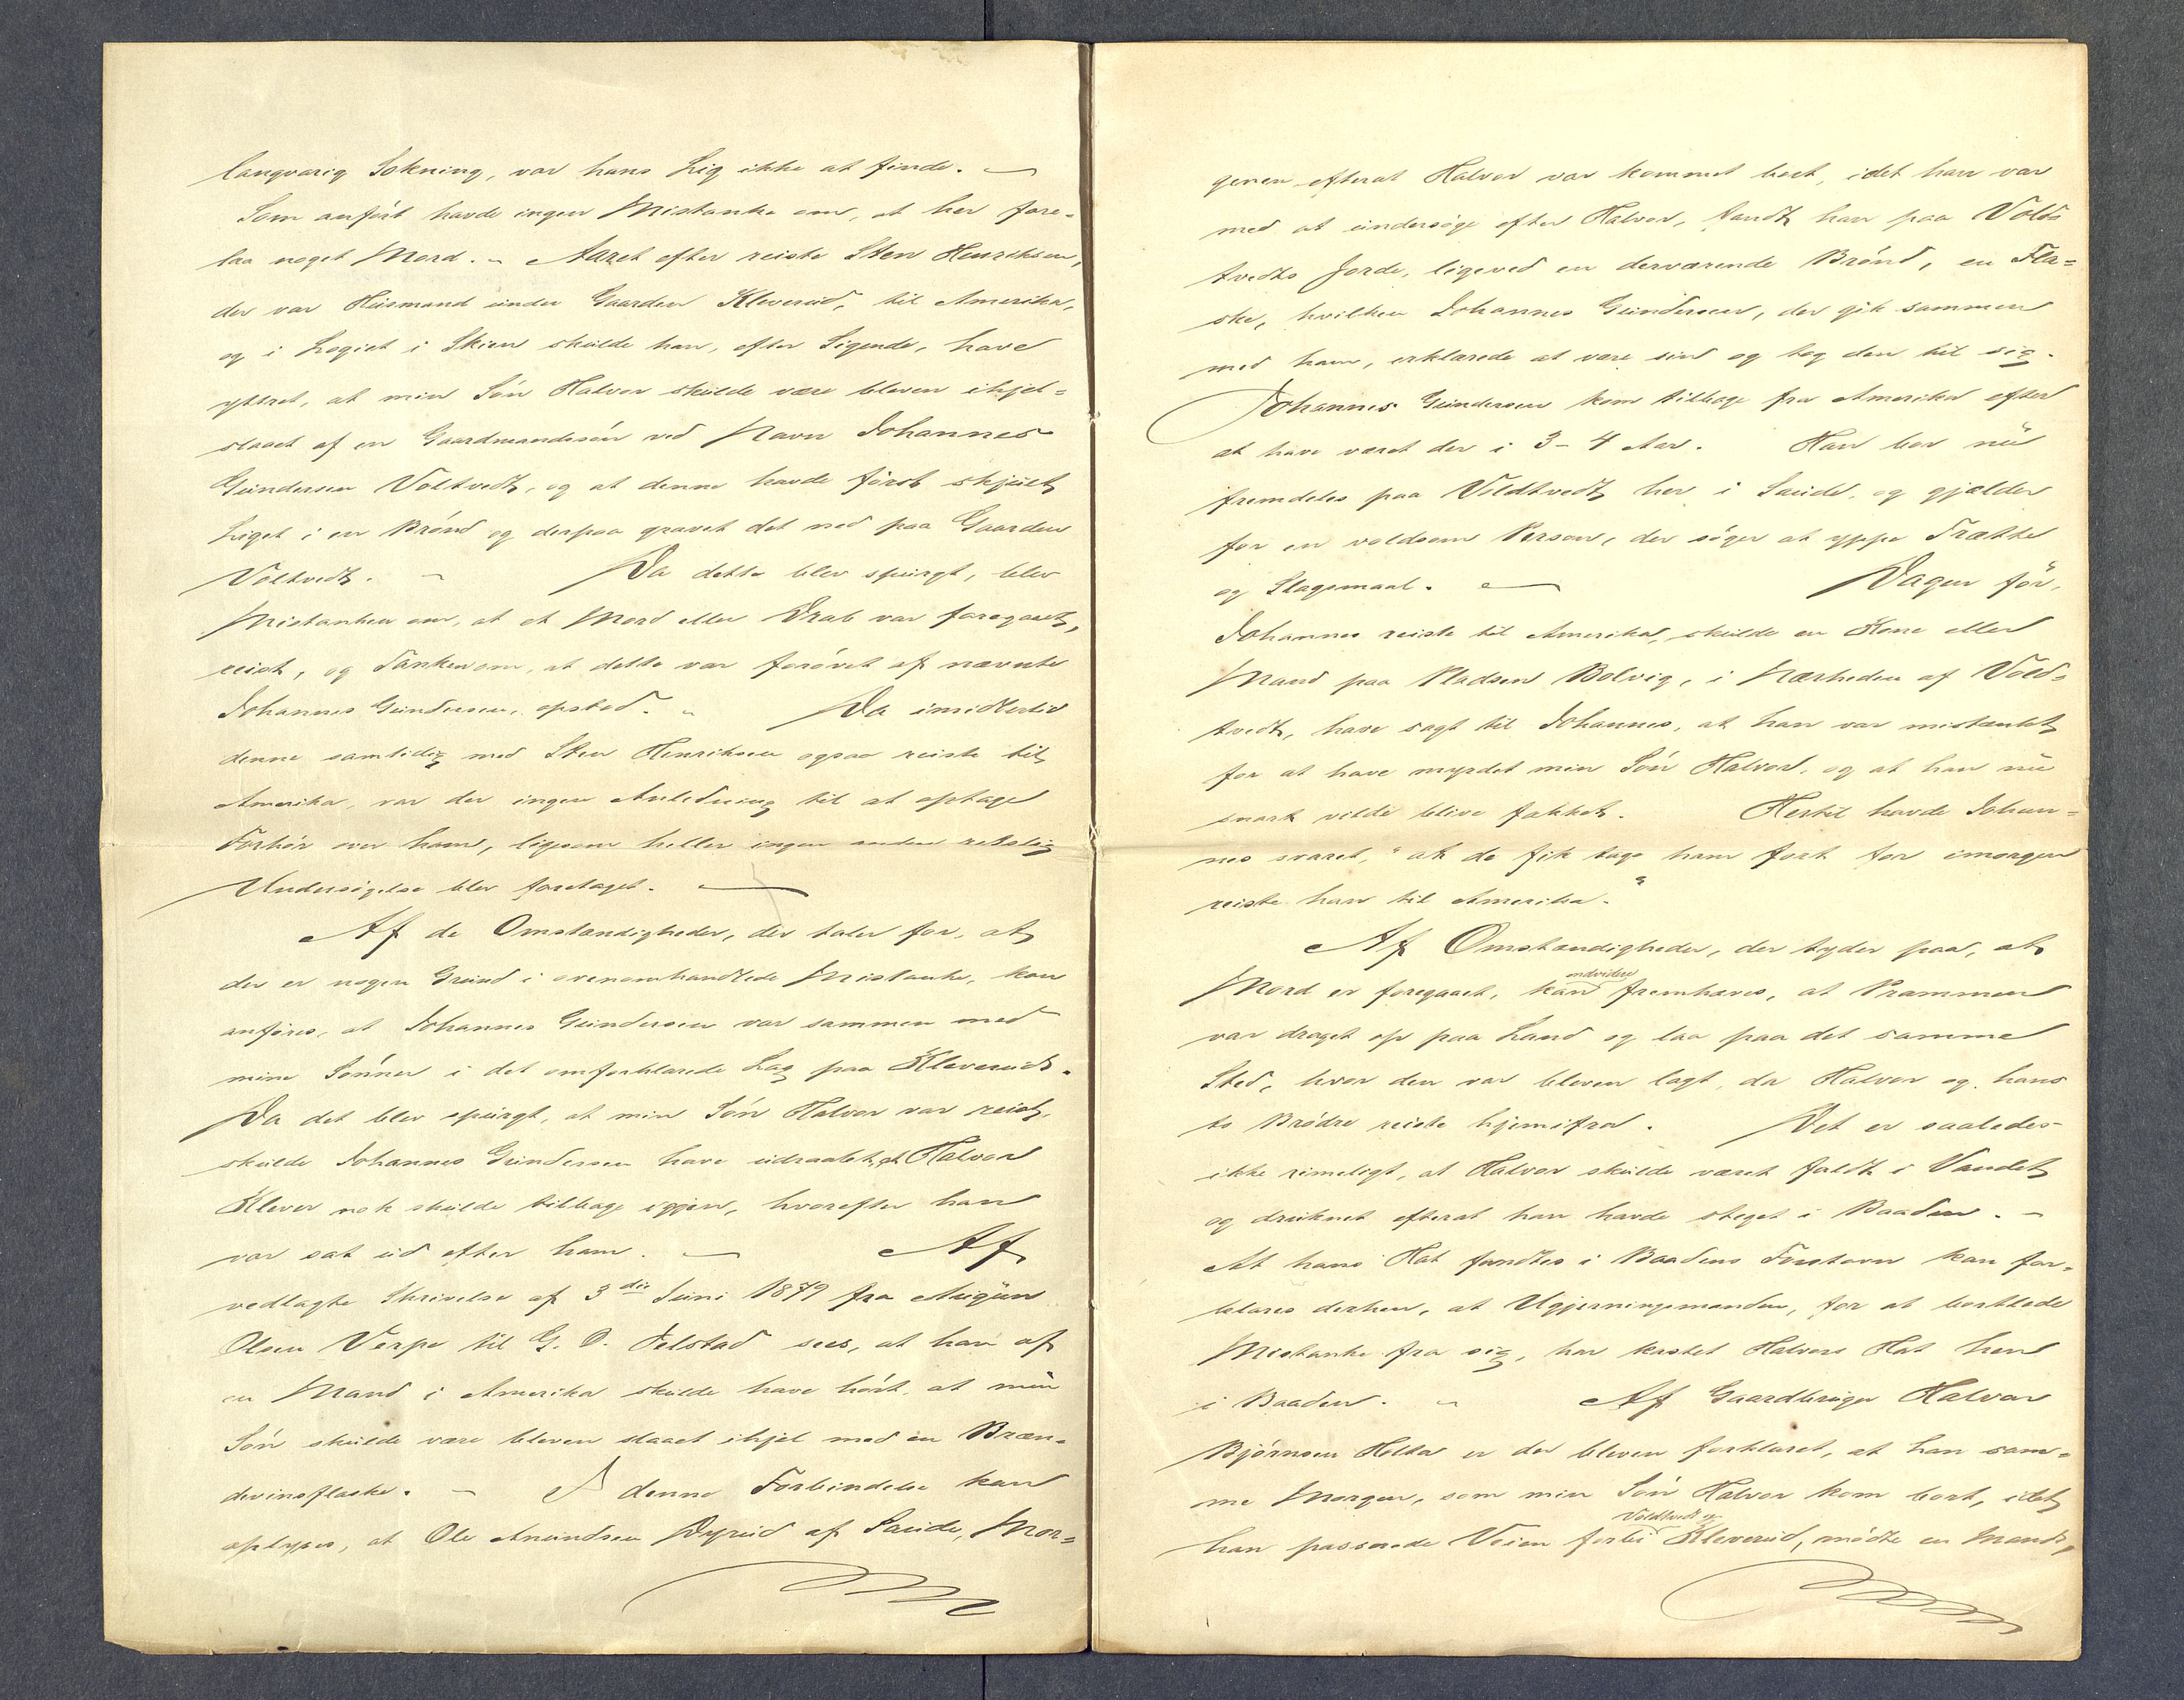 langvarig Sokning, var hans Lig ikke at finde. —
Som anført havde ingen Mistanke om, at her fore-
laa noget Mord. — Aaret efter reiste Sten Henriksen,
der var Husmand under Gaarden Kleverud, til Amerika,
og i Logiet i Skien skulde han, efter Sigende, have
yttret, at min Søn Halvor skulde være bleven ihjel-
slaaet af en Gaardmandssøn ved Navn Johannes
Gundersen Voltvedt, og at denne havde først skjult
Liget i en Brønd og derpaa gravet det ned paa Gaarden
Voltvedt. — Da dette blev spurgt, blev
Mistanken om, at et Mord eller Drab var foregaaet,
reist, og Tanken om, at dette var forøvet af nævnte
Johannes Gundersen, opstod. — Da imidlertid
denne samtidig med Sten Henriksen ogsaa reiste til
Amerika, var der ingen Anledning til at optage
Forhør over ham, ligesom heller ingen anden retslig
Undersøgelse blev foretaget. —
Af de Omstændigheder, der taler for, at
der er nogen Grund i ovenomhandlede Mistanke, kan
anføres, at Johannes Gundersen var sammen med
mine Sønner i det omforklarede Lag paa Kleverud.
Da det blev spurgt, at min Søn Halvor var reist,
skulde Johannes Gundersen have udraabt, at Halvor
Klever nok skulde tilbage igjen, hvorefter han
var sat ud efter ham. — Af
vedlagte Skrivelse af 3die Juni 1879 fra Augun
Olsen Verpe til G. O. Jelstad sees, at han af
en Mand i Amerika skulde have hørt, at min
Søn skulde være bleven slaaet ihjel med en Bræn-
devinsflaske. — I denne Forbindelse kan
oplyses, at Ole Anundsen Dyrud af Saude, Mor-
genen efterat Halvor var kommet bort, idet han var
med at undersøge efter Halvor, fandt han paa Volds
tvedts Jorde, ligeved en derværende Brønd, en Fla-
ske, hvilken Johannes Gundersen, der gik sammen
med ham, erklærede at være sin og tog den til sig.
Johannes Gundersen kom tilbage fra Amerika efter
at have været der i 3-4 Aar. Han bor nu
fremdeles paa Voldtvedt her i Saude, og gjælder
for en voldsom Person, der søger at yppe Trætte
og Slagsmaal. — Dagen før,
Johannes reiste til Amerika, skulde en Kone eller
Mand paa Pladsen Bolvig, i Nærheden af Vold-
tvedt, have sagt til Johannes, at han var mistænkt
for at have myrdet min Søn Halvor, og at han nu
snart vilde blive fakket. Hertil havde Johan-
nes svaret, "at de fik tage ham fort for imorgen
reiste han til Amerika."
Af Omstændigheder, der tyder paa, at
Mord er foregaaet, kan endvidere fremhæves, at Prammen
var draget op paa Land og laa paa det samme
Sted, hvor den var bleven lagt, da Halvor og hans
to Brødre reiste hjemifra. Det er saaledes
ikke rimeligt, at Halvor skulde været faldt i Vandet
og druknet efterat han havde steget i Baaden. —
At hans Hat fandtes i Baadens Forstavn kan for-
klares derhen, at Ugjerningsmanden, for at bortlede
Mistanke fra sig, har kastet Halvors Hat hen
i Baaden. — Af Gaardbruger Halvor
Bjørnsen Holta er der bleven forklaret, at han sam-
me Morgen, som min Søn Halvor kom bort, idet
han passerede Veien forbi Voldtvedt og Kleverud, mødte en Mand,